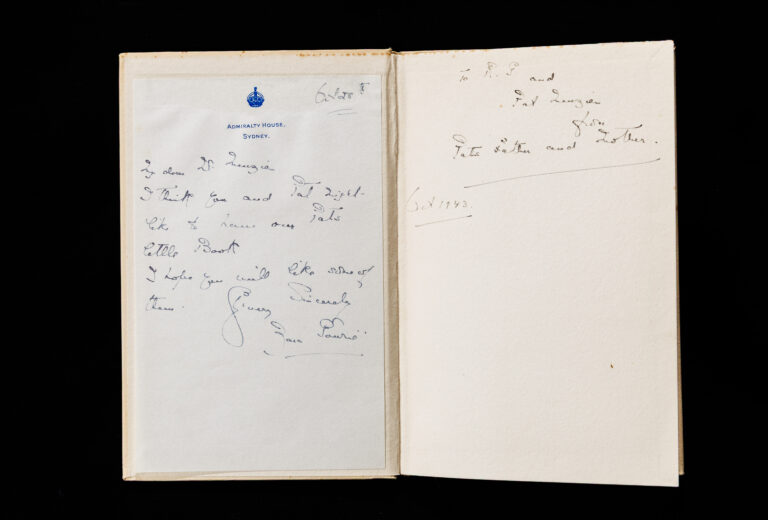 Oct 28th
ADMIRALTY HOUSE,
SYDNEY.
My dear Mr. Menzies
I think you and Pat might
like to have our Pat's
little Book
I hope you will like some of
them. Yours Sincerely
Zara Gowrie
To R. G and
Pat Menzies
from
Pats Father and Mother.
Oct 1943.